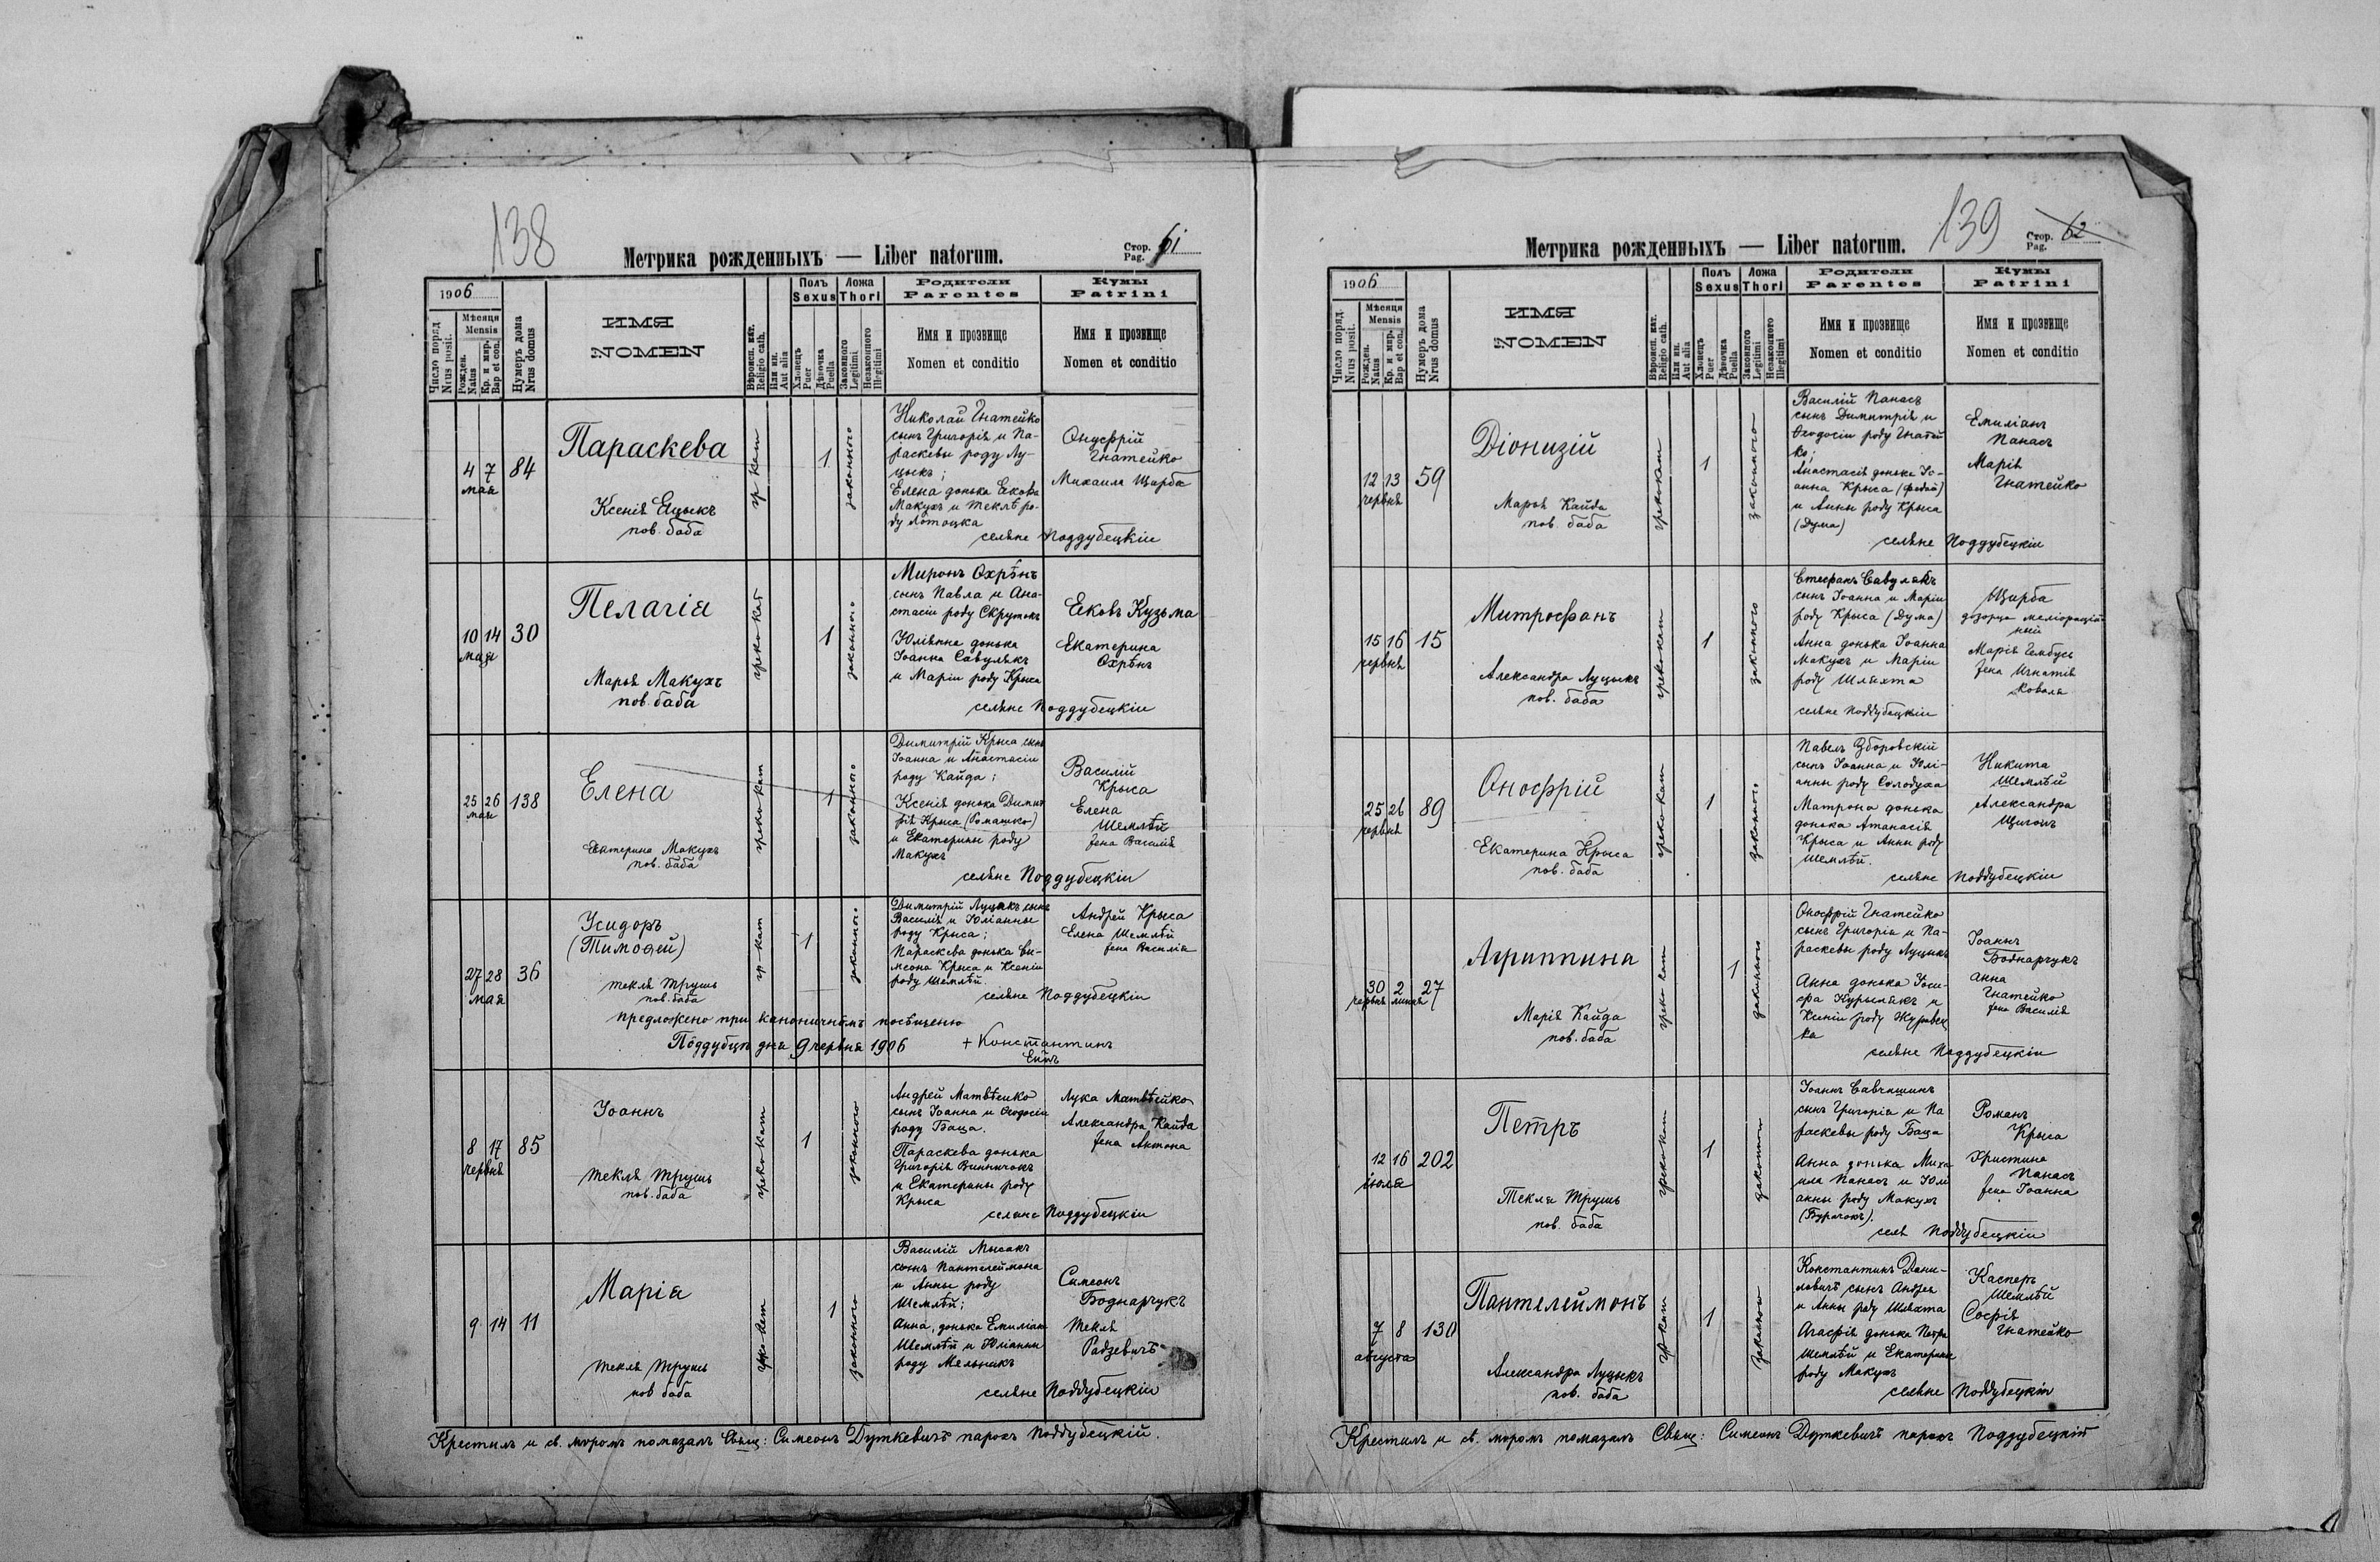 138
Метрика рожденныхъ — Liber natorum.
Стор.
Pag. 61
1906
Число поряд.
Nrus posit.
Мѣсяця
Mensis
Рожден.
Natus
Кр. и мир.
Bap et con.
Нумеръ дома
Nrus domus
ИМЯ
NOMEN
Вѣроисп. кат.
Religio cath.
Или ин.
Aut alia
Полъ
Sexus
Хлопецъ
Puer
Дѣвочка
Puella
Ложа
Thori
Законного
Legitimi
Незаконного
Illegitimi
Родители
Parentes
Имя и прозвище
Nomen et conditio
Кумы
Patrini
Имя и прозвище
Nomen et conditio
4 7 84
мая
Параскева
Ксенія Ецыкъ
пов. баба
гр кат
1
законного
Николай Гнатейко
сынъ Григорія и Па-
раскевы роду Лу-
цыкъ;
Елена донька Екова
Макухъ и Теклѣ ро-
ду Лотоцка
Онуфрій
Гнатейко
Михаилъ Щирба
селяне Поддубецкіи
10 14 30
мая
Пелагія
Марья Макухъ
пов. баба
греко кат
1
законного
Миронъ Охрѣнъ
сынъ Павла и Ана-
стасіи роду Скрутокъ
Юліянна донька
Іоанна Савулякъ
и Маріи роду Крыса
Ековъ Кузьма
Екатерина
Охрѣнъ
селяне Поддубецкіи
25 26 138
мая
Елена
Екатерина Макухъ
пов. баба
греко кат
1
законного
Димитрій Крыса сынъ
Іоанна и Анастасіи
роду Кайда;
Ксенія донька Димит
рія Крыса (Ромашко)
и Екатерины роду
Макухъ
Василій
Крыса
Елена
Шемлѣй
жена Василія
селяне Поддубецкіи
27 28 36
мая
Усидоръ
(Тимофей)
текля Трушь
пов. баба
гр-кат
1
законного
Димитрій Луцыкъ сынъ
Василія и Юліанны
роду Крыса;
Параскева донька Си-
меона Крыса и Ксеніи
роду Шемлѣй.
Андрей Крыса
Елена Шемлѣй
жена Василія
селяне Поддубецкіи
предложено при каноничнѣмъ посѣщеню
Поддубцѣ дня 9 червня 1906
+ Константинъ
Епѣъ
8 17 85
червня
Іоаннъ
текля Трушь
пов. баба
греко кат
1
законного
Андрей Матвѣйко
сынъ Іоанна и Феодосіи
роду Баца.
Параскева донька
Григорія Винничокъ
и Екатерины роду
Крыса
Лука Матвѣйко
Александра Кайда
жена Антона
селяне Поддубецкіи
9 14 11
Марія
текля Трушь
пов баба
греко кат
1
законного
Василій Мысакъ
сынъ Пантелеймона
и Анны роду
Шемлѣй;
Анна, донька Емиліана
Шемлѣй и Юліанны
роду Мельникъ
Симеонъ
Боднарчукъ
Текля
Радзевичъ
селяне Поддубецкіи
Крестилъ и св. мѵромъ помазалъ Свящ: Симеонъ Дуткевичъ парохъ Поддубецкій.
139
Метрика рожденныхъ — Liber natorum.
Стор.
Pag. 62
1906
Число поряд.
Nrus posit.
Мѣсяця
Mensis
Рожден.
Natus
Кр. и мир.
Bap et con.
Нумеръ дома
Nrus domus
ИМЯ
NOMEN
Вѣроисп. кат.
Religio cath.
Или ин.
Aut alia
Полъ
Sexus
Хлопецъ
Puer
Дѣвочка
Puella
Ложа
Thori
Законного
Legitimi
Незаконного
Illegitimi
Родители
Parentes
Имя и прозвище
Nomen et conditio
Кумы
Patrini
Имя и прозвище
Nomen et conditio
12 13 59
червня
Діонизій
Марья Кайда
пов. баба
греко кат
1
законного
Василій Панасъ
сынъ Димитрія и
Феодосіи роду Гнатей
ко;
Анастасія донька Іо-
анна Крыса (Федай)
и Анны роду Крыса
(Дума)
Емиліанъ
Панасъ
Марія
Гнатейко
селяне Поддубецкіи
15 16 15
червня
Митрофанъ
Александра Луцыкъ
пов. баба
греко кат
1
законного
Стефанъ Савулякъ
сынъ Іоанна и Маріи
роду Крыса (Дума)
Анна донька Іоанна
Макухъ и Маріи
роду Шляхта
селяне Поддубецкіи
Щирба
дозорца меліораційный
Марія Гембусь
жена Игнатія
Коваля
25 26 89
червня
Онофрій
Екатерина Крыса
пов. баба
греко кат
1
законного
Павелъ Зборовскій
сынъ Іоанна и Юлі-
анны роду Солодуха
Матрона донька
донька Атанасія
Крыса и Анны роду
Шемлѣй.
Никита
Шемлѣй
Александра
Щигонъ
селяне Поддубецкіи
30 2 27
червня липня
Агриппина
Марія Кайда
пов. баба
греко кат
1
законного
Онофрій Гнатейко
сынъ Григорія и Па-
раскевы роду Луцыкъ
Анна донька Іоси-
фа Курылякъ и
Ксеніи роду Журавец
ка
Іоаннъ
Боднарчукъ
Анна
Гнатейко
жена Василія
селяне Поддубецкіи
12 16 202
іюля
Петръ
Текля Трушь
пов. баба
греко кат
1
законного
Іоаннъ Савчишинъ
сынъ Григорія и Па
раскевы роду Баца
Анна донька Миха
ила Панасъ и Юлі
анны роду Макухъ
(Бурачокъ).
Романъ
Крыса
Христина
Панасъ
жена Іоанна
селя Поддубецкіи
7 8 130
августа
Пантелеймонъ
Александра Луцыкъ
пов. баба
гр кат
1
законного
Константинъ Дани-
ловичъ сынъ Андрея
и Анны роду Шляхта
Агафія донька Петра
Шемлѣй и Екатерины
роду Макухъ
Касперъ
Шемлѣй
Софія
Гнатейко
селяне Поддубецкіи
Крестилъ и св. мѵромъ помазалъ Свящ: Симеонъ Дуткевичъ парохъ Поддубецкій